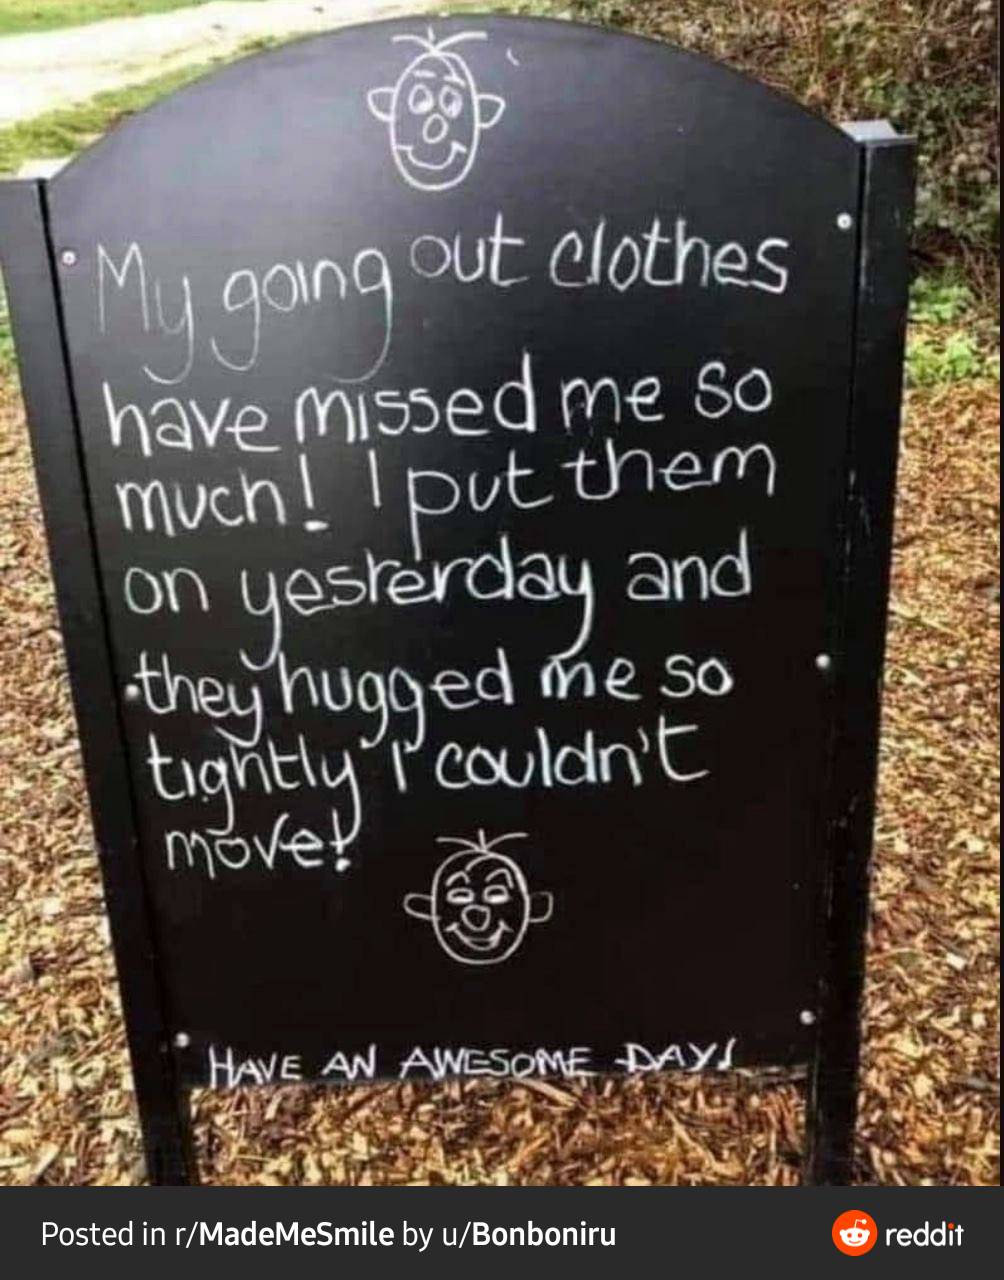 My going out clothes
have missed me so
much! I put them
on yesterday and
they hugged me so
tightly I couldn't
move!
HAVE AN AWESOME DAY!
Posted in r/MadeMeSmile by u/Bonboniru
reddit